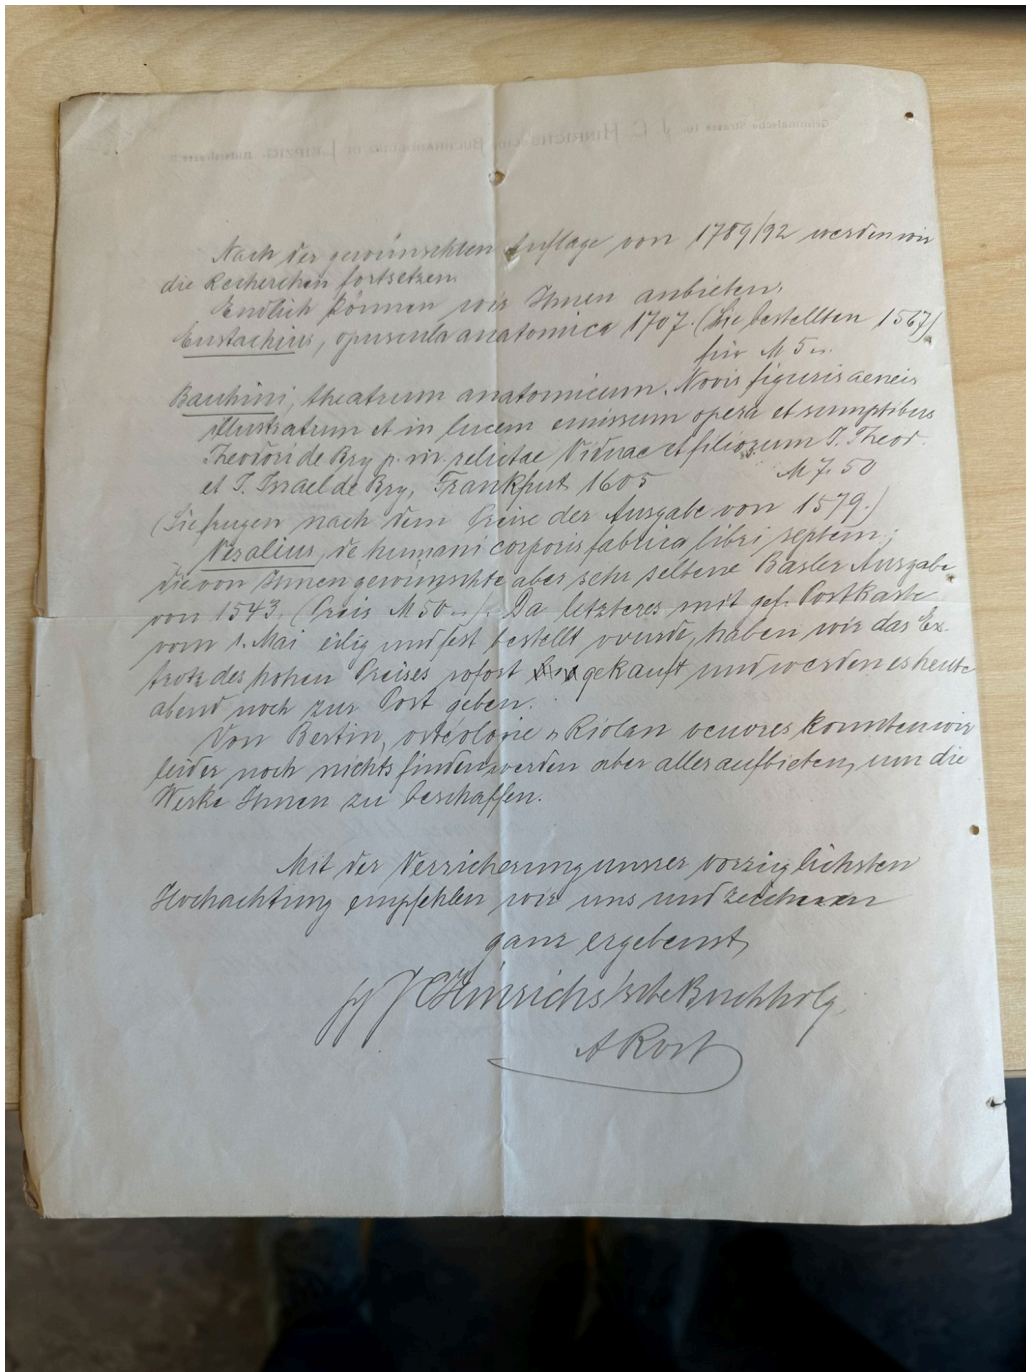 Nach der gewünschten Auflage von 1789/92 werden wir
die Recherchen fortsetzen.
Endlich können wir Ihnen anbieten:
Eustachius, opuscula anatomica 1707. (Sie bestellten 1567)
für M 5 „.
Bauhini, theatrum anatomicum. Novis figuris aeneis
illustratum et in lucem emissum opera et sumptibus
Theodori de Bry p. m. relictae Viduae et filiorum J. Theod.
et J. Israel de Bry, Frankfurt 1605 M 7. 50
(Sie frugen nach dem Preise der Ausgabe von 1579.)
Vesalius, de humani corporis fabrica libri septem;
die von Ihnen gewünschte aber sehr seltene Basler Ausgabe
von 1543. (Preis M 50 „ ). Da letzteres mit gef. Postkarte
vom 1. Mai eilig und fest bestellt wurde, haben wir das Ex.
trotz des hohen Preises sofort gekauft und werden es heute
abend noch zur Post geben.
Von Bertin, ostéologie „ Riolan oeuvres konnten wir
leider noch nichts finden, werden aber alles aufbieten, um die
Werke Ihnen zu beschaffen.
Mit der Versicherung unsrer vorzüglichsten
Hochachtung empfehlen wir uns und zeichnen
ganz ergebenst,
J C Hinrichs'sche Buchhdlg.
A Rost